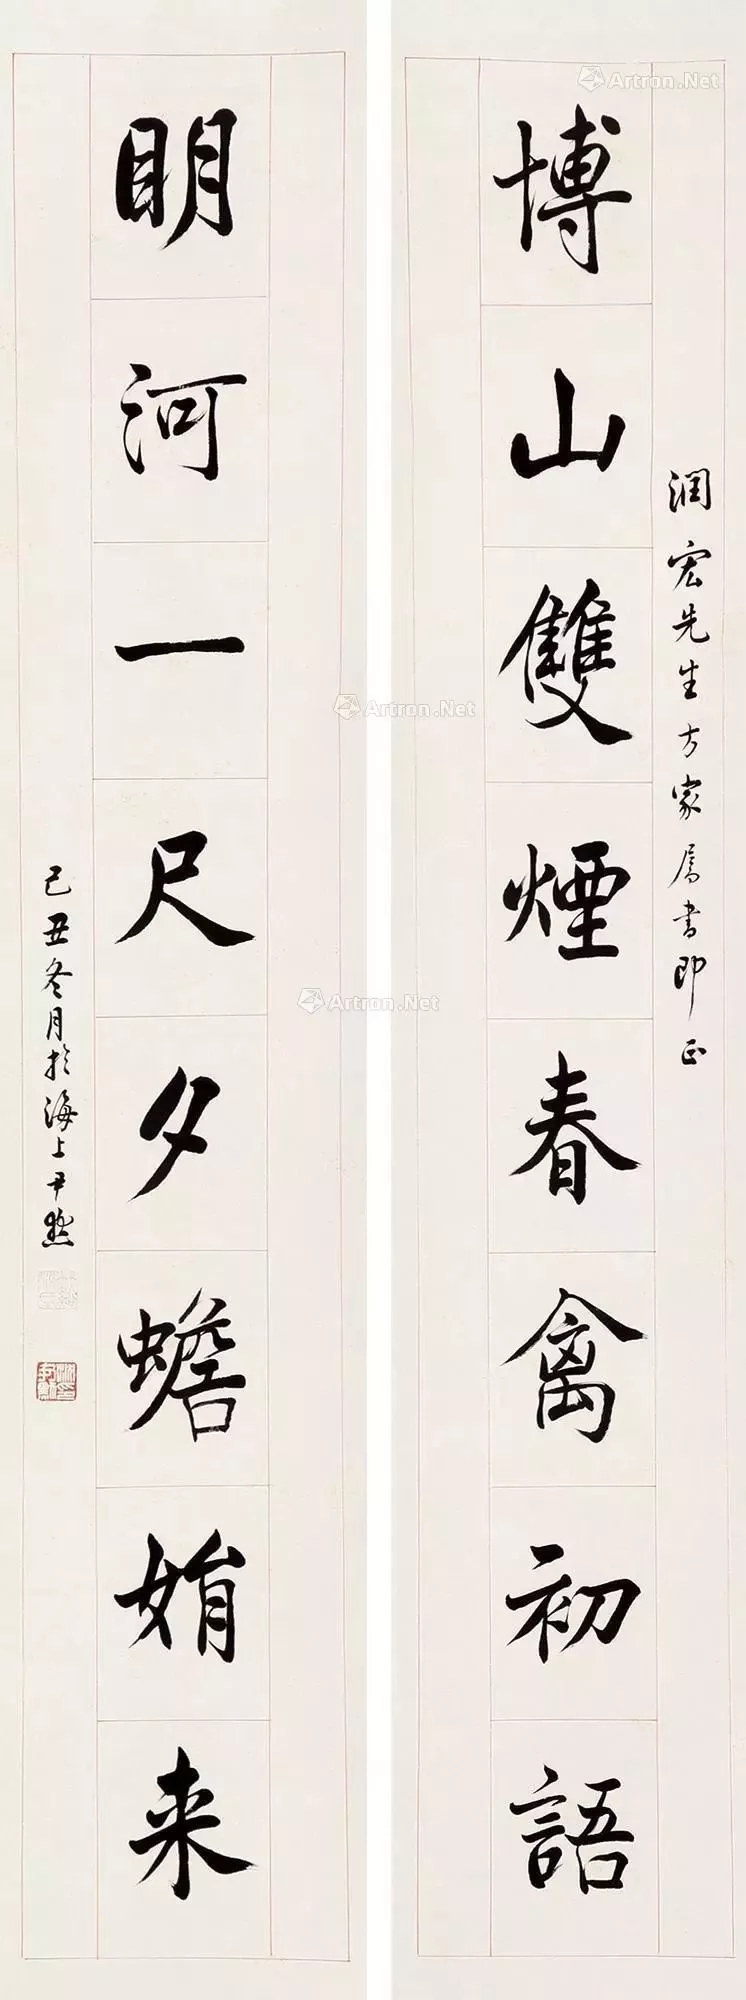 潤宏先生方家属書即正
博山雙煙春禽初語
明河一尺夕蟾始来
己丑冬月於海上尹默
Artron.Net
Artron.Net
Artron.Net